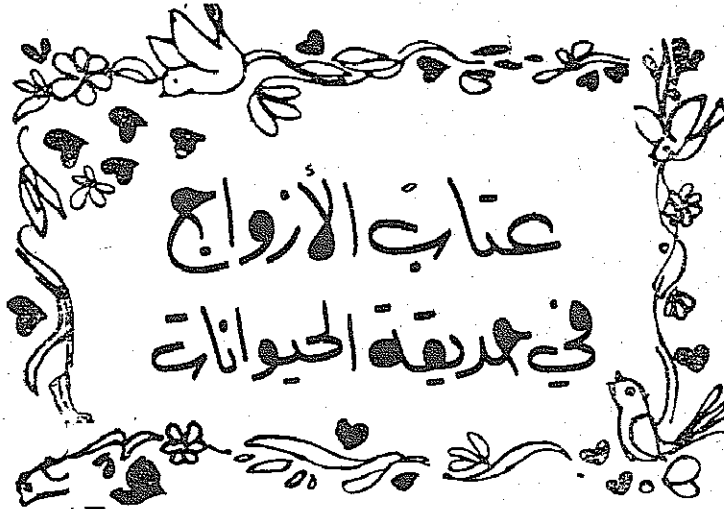 عتاب الأزواج
في حديقة الحيوانات